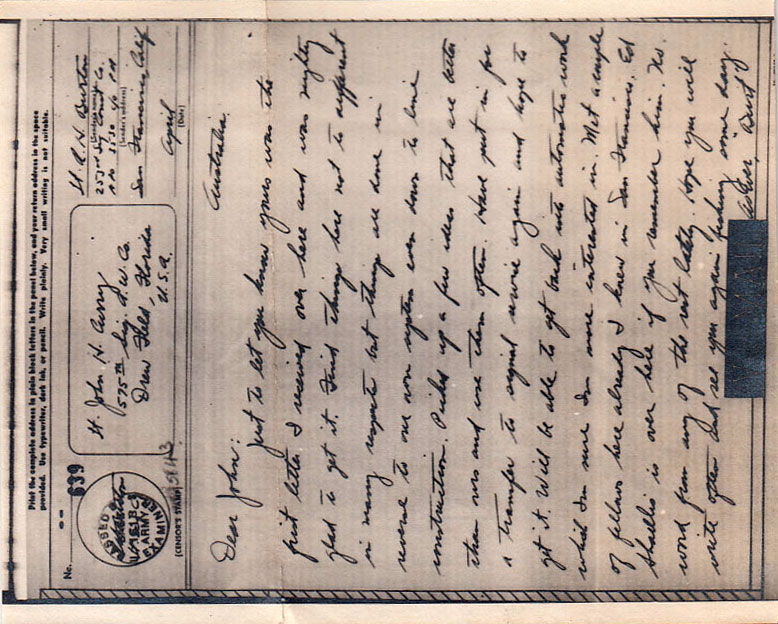 Print the complete address in plain block letters in the panel below, and your return address in the space
provided. Use typewriter, dark ink, or pencil. Write plainly. Very small writing is not suitable.
No. 639
PASSED BY
ARMY EXAMINER
(CENSOR'S STAMP)
Lt. John H. Curry
575th Sig. A.W. Co.
Drew Field, Florida
U.S.A.
Lt. R. H. Burton
(Sender's name)
(Sender's address)
San Francisco, Calif
April
(Date)
Australia.
Dear John:
Just to let you know yours was the
first letter I received over here and was mighty
glad to get it. Find things here not to different
in many respects but things are done in
reverse to our own system even down to line
construction. Picked up a few ideas that are better
than ours and use them often. Have put in for
a transfer to signal service again and hope to
get it. Will be able to get back into automatic work
which I'm sure I'm more interested in. Met a couple
of fellows here already I knew in San Francisco. Ed
is over here if you remember him. No
word from any of the rest lately. Hope you will
write often and see you again fishing some day.
Burt
V-MAIL